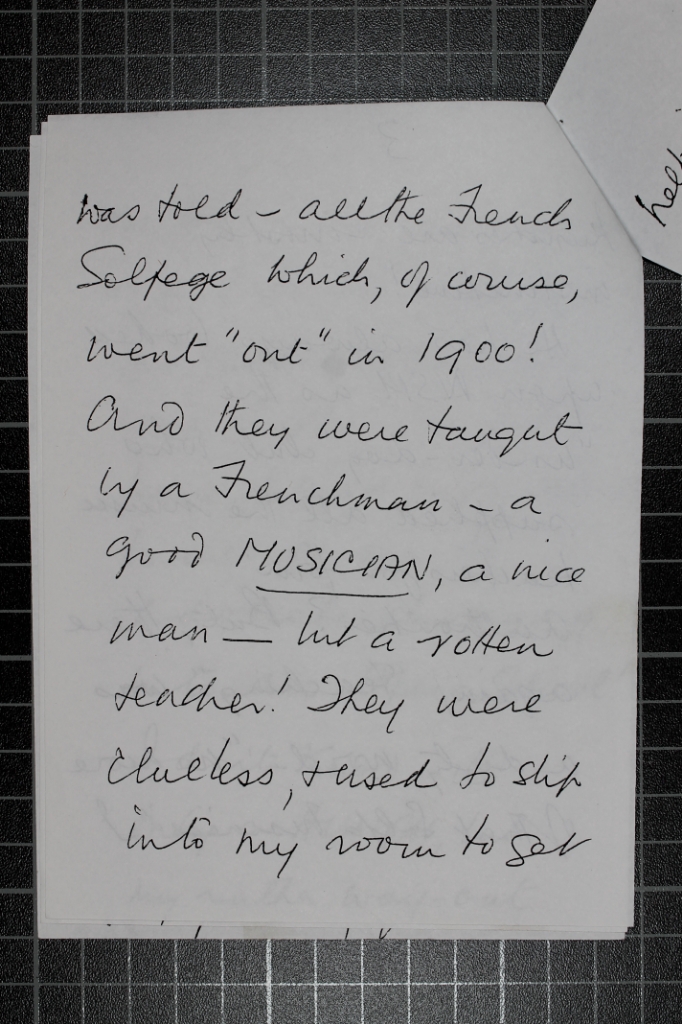 was told – all the French
Solfege which, of course,
went "out" in 1900!
And they were taught
by a Frenchman – a
good MUSICIAN, a nice
man — but a rotten
teacher! They were
clueless, & used to slip
into my room to get